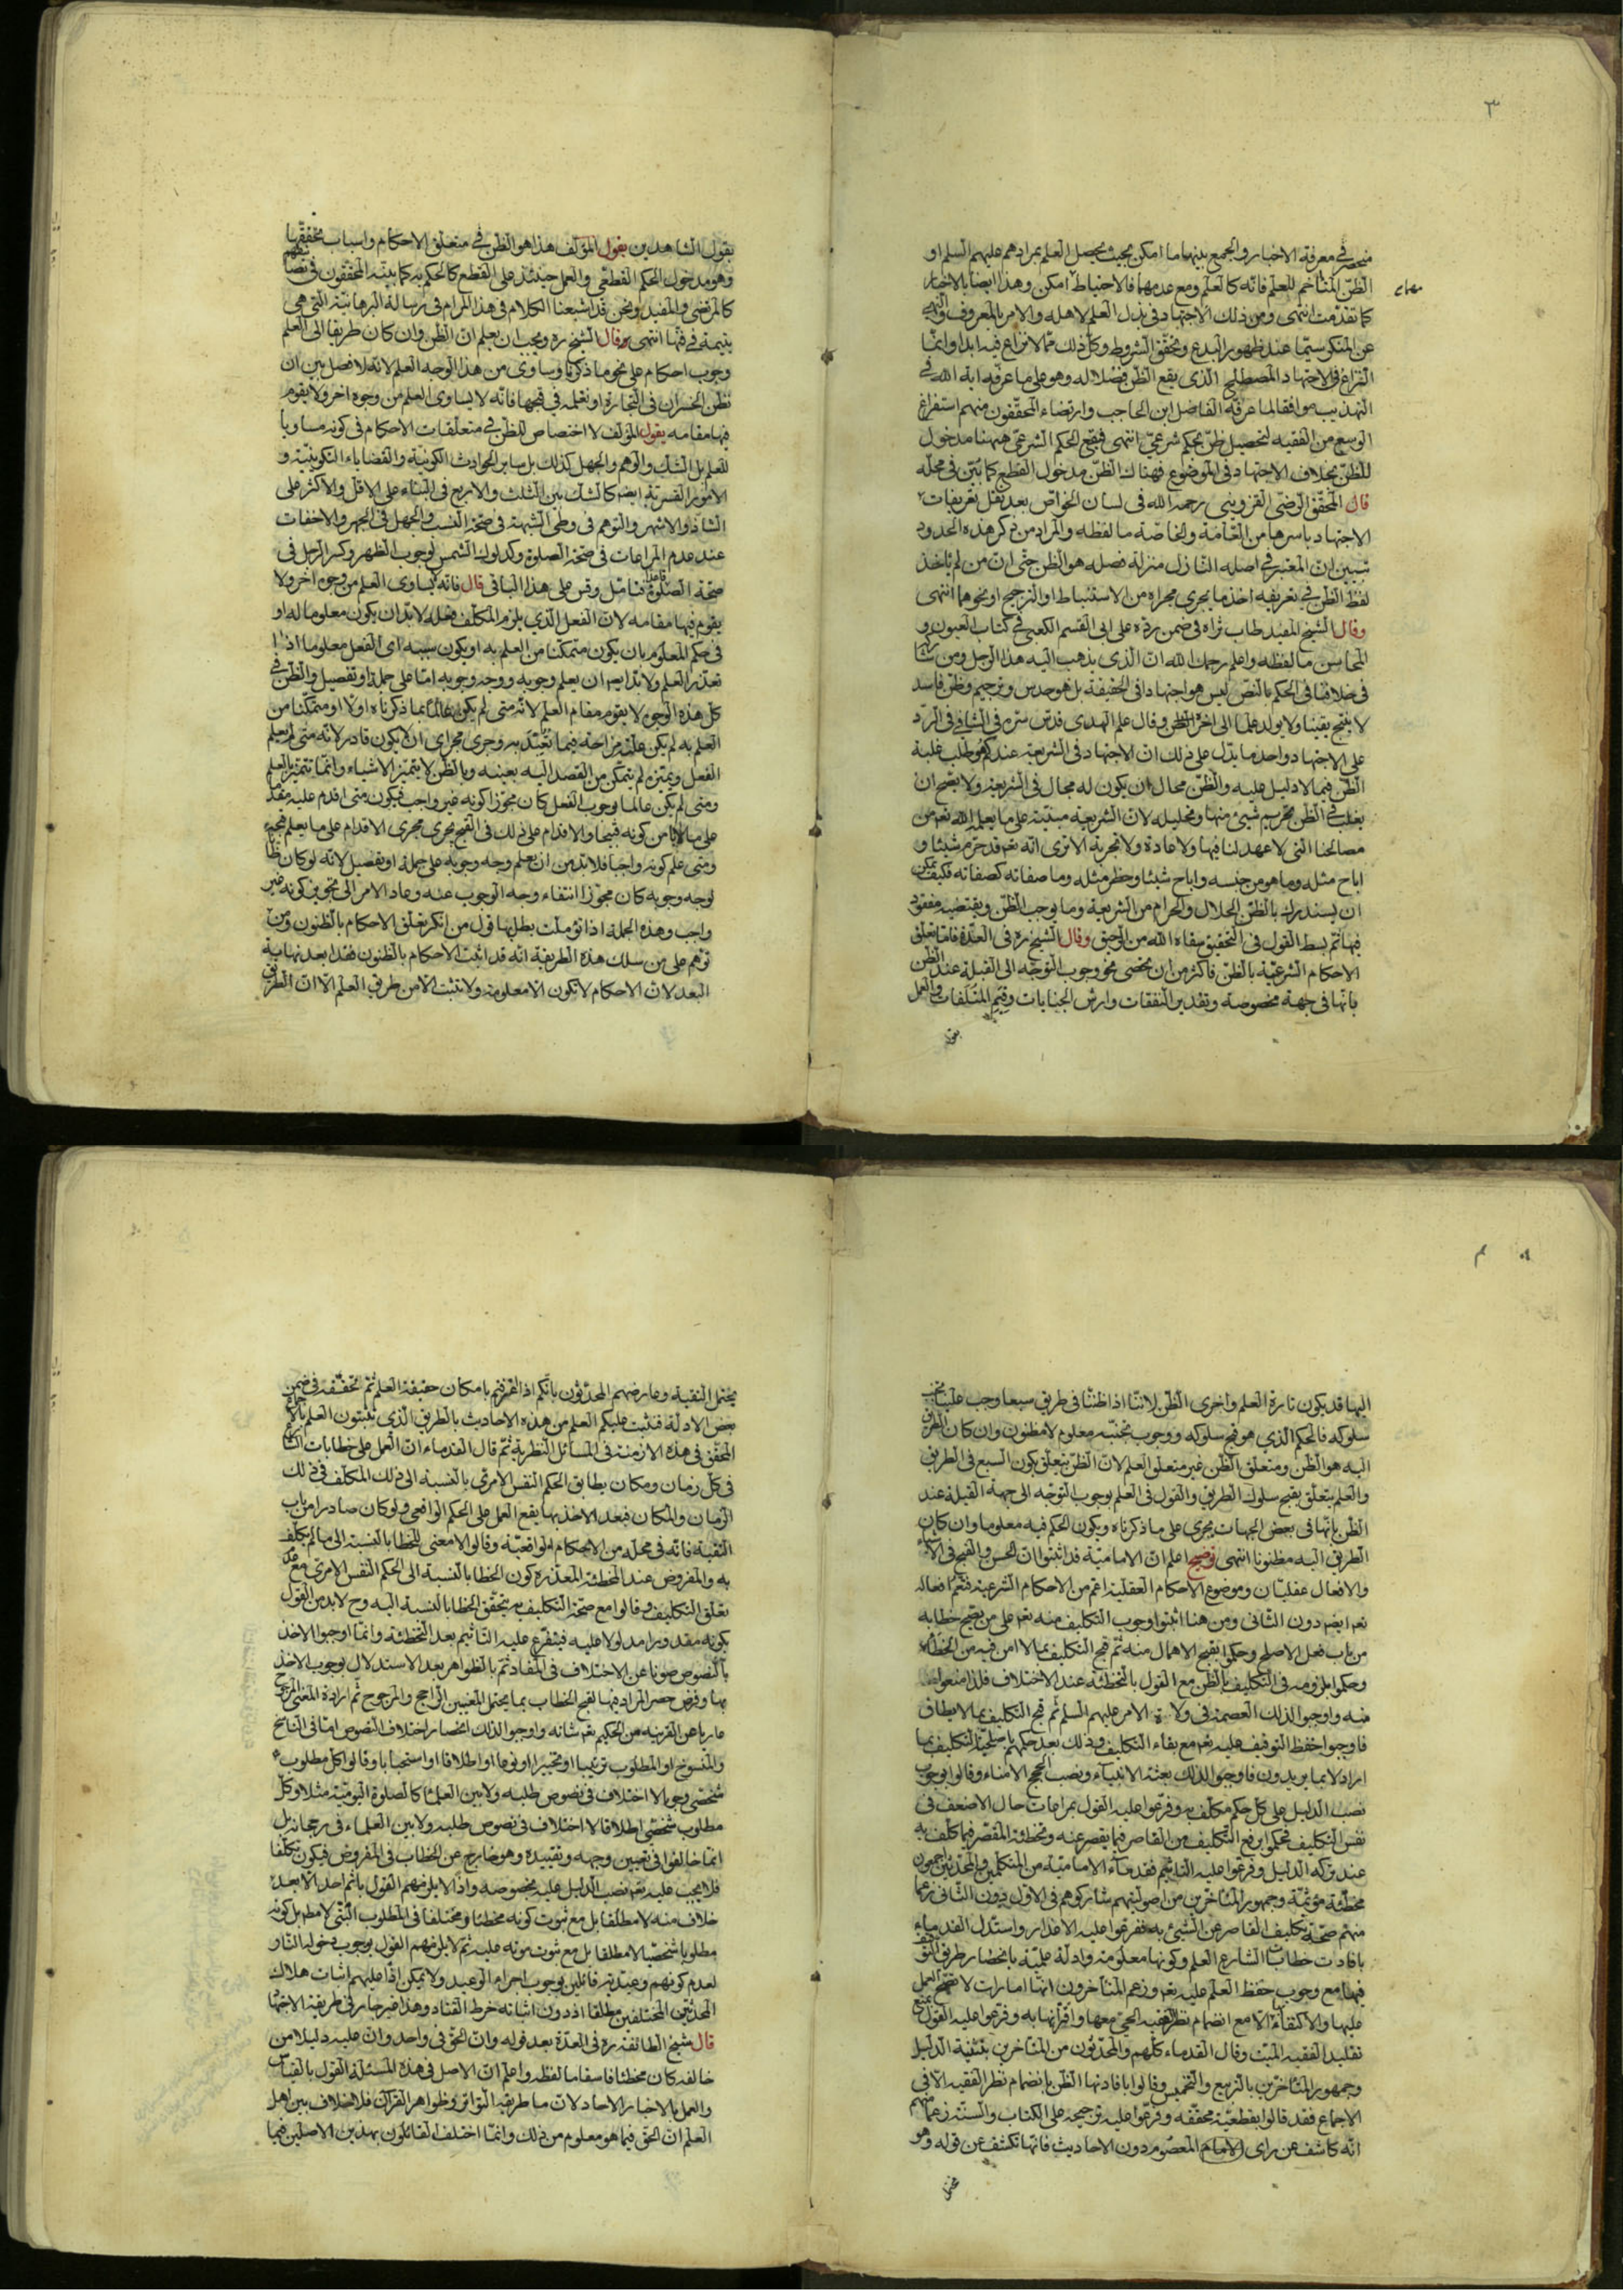 ٣
منحصر في معرفة الاخبار والجمع بينها ما امكن بحيث يحصل العلم بمرادهم عليهم السلم او
الظن المتاخم للعلم فانه كالعلم ومع عدمهما فالاحتياط ان امكن وهذا ايضا بالاخبار
كما تقدمت انتهى ومن ذلك الاجتهاد في بذل العلم لاهله والامر بالمعروف والنهى
عن المنكر سيما عند ظهور البدع وتحقق الشروط وكل ذلك مما لا نزاع فيه ابدا وانما
النزاع في الاجتهاد المصطلح الذى يقع الظن فضلا له وهو على ما عرفه اية الله في
التهذيب موافقا لما عرفه الفاضل ابن الحاجب وارتضاء المحققون منهم استفراغ
الوسع من الفقيه لتحصيل ظن بحكم شرعي انتهى فيقع الحكم الشرعي ههنا مدخول
للظن بخلاف الاجتهاد في الموضوع فهناك الظن مدخول القطع كما بين في محله
قال المحقق الرضى القزوينى رحمه الله فى لسان الخواص بعد نقل تعريفات
الاجتهاد باسرها من العامة والخاصة ما لفظه والمراد من ذكر هذه الحدود
تبيين ان المعتبر في اصله النازل منزلة فصله هو الظن حتى ان من لم ياخذ
لفظ الظن في تعريفه اخذ ما يجرى مجراه من الاستنباط او الترجيح او نحوهما انتهى
وقال الشيخ المفيد طاب ثراه فى ضمن رده على ابى القسم الكعبي في كتاب العيون و
المحاسن ما لفظه واعلم رحمك الله ان الذى يذهب اليه هذا الرجل ومن شاركه
فى خلافنا فى الحكم بالنص ليس هو اجتهادا فى الحقيقة بل هو حدس وترجيم وظن فاسد
لا ينتج يقينا ولا يولد علما الى اخره وقال علم الهدى قدس سره في الشافي في الرد
على الاجتهاد واحد ما يدل على ذلك ان الاجتهاد فى الشريعة عندكم هو طلب غلبة
الظن فيما لا دليل عليه والظن محال ان يكون له مجال فى الشريعة ولا يصح ان
يغلب في الظن تحريم شيئ منها وتحليله لان الشريعة مبنية على ما يعلمه الله تعم من
مصالحنا التى لا عهد لنا فيها ولا عادة ولا تجربة الا ترى انه تعم قد حرم شيئا و
اباح مثله وما هو من جنسه واباح شيئا وحظر مثله وما صفاته كصفاته فكيف يمكن
ان يستدرك بالظن الحلال والحرام من الشريعة وما يوجب الظن ويقتضيه مفقود
فيها ثم بسط القول فى التحقيق سقاه الله من الرحيق وقال الشيخ ره فى العدة فاما تعلق
الاحكام الشرعية بالظن فاكثر من ان تحصى نحو وجوب التوجه الى القبلة عند الظن
بانها فى جهة مخصوصة وتقدير النفقات وارش الجنايات وقيم المتلفات والعمل
بقول
بقول الشاهدين يقول المؤلف هذا هو الظن في متعلق الاحكام واسباب تحققها
وهو مدخول الحكم القطعي والعمل حينئذ على القطع كالحكم به كما بينه المحققون في تصانيفهم
كالمرتضى والمفيد ونحن قد اشبعنا الكلام فى هذا المرام فى رسالة البرهانية التى هى
يتيمة في فنها انتهى وقال الشيخ ره ويجب ان يعلم ان الظن وان كان طريقا الى العلم
وجوب احكام على نحو ما ذكرنا وساوى من هذا الوجه العلم لانه لا فصل بين ان
نظن الخسران فى التجارة او نعلمه في قبحها فانه لا يساوى العلم من وجوه اخر ولا يقوم
فيها مقامه يقول المؤلف لا اختصاص للظن في متعلقات الاحكام فى كونه مساويا
للعلم بل الشك والوهم والجهل كذلك بل ساير الحوادث الكونية والقضاياء التكوينية و
الامور القسرية ايضا كالشك بين الثلث والاربع فى البناء على الاقل والاكثر على
الشاذ والاشهر والتوهم فى وطى الشبهة فى صحة النسب والجهل فى الجهر والاخفات
عند عدم المراعات فى صحة الصلوة وكدلوك الشمس لوجوب الظهر وكسر الرجل فى
صحة الصلوة قاعدا فتامل وقس على هذا الباقى قال فانه لا يساوى العلم من وجوه اخر ولا
يقوم فيها مقامه لان الفعل الذي يلزم المكلف فعله لابد ان يكون معلوما له او
فى حكم المعلوم بان يكون متمكنا من العلم به او يكون سببه اى الفعل معلوما اذا
تعذر العلم ولابد ايضا ان يعلم وجوبه ووجه وجوبه اما على جملة او تفصيل والظن في
كل هذه الوجوه لا يقوم مقام العلم لانه متى لم يكن عالما بما ذكرناه اولا او متمكنا من
العلم به لم يكن علته مزاحة فيما تعبد به وجرى مجرى ان لا يكون قادر لانه متى لم يعلم
الفعل ويميزه لم يتمكن من القصد اليه بعينه وبالظن لا يتميز الاشياء وانما تتميز بالعلم
ومتى لم يكن عالما بوجوب الفعل كان مجوزا كونه غير واجب فيكون متى اقدم عليه مقدما
على ما لا يامن كونه قبيحا والاقدام على ذلك فى القبح يجرى مجرى الاقدام على ما يعلم قبحه
ومتى علم كونه واجبا فلابد من ان يعلم وجه وجوبه على جملة او تفصيل لانه لو كان ظانا
لوجه وجوبه كان مجوزا انتفاء وجه الوجوب عنه وعاد الامر الى تجويز كونه غير
واجب وهذه الجملة اذا تؤملت بطل بها قول من انكر تعلق الاحكام بالظنون ومن
توهم على من سلك هذه الطريقة انه قد اثبت الاحكام بالظنون فقد ابعد نهاية
البعد لان الاحكام لا تكون الا معلومة ولا تثبت الا من طريق العلم الا ان الطريق
اليها قد يكون تارة العلم واخرى الظن لاننا اذا ظننا فى طريق سبعا وجب علينا تجنب
سلوكه فالحكم الذي هو قبح سلوكه ووجوب تجنبه معلوم لا مظنون وان كان الطريق
اليه هو الظن ومتعلق الظن غير متعلق العلم لان الظن يتعلق بكون السبع فى الطريق
والعلم يتعلق بقبح سلوك الطريق والقول فى العلم بوجوب التوجه الى جهة القبلة عند
الظن بانها فى بعض الجهات يجرى على ما ذكرناه ويكون الحكم فيه معلوما وان كان
الطريق اليه مظنونا انتهى توضيح اعلم ان الامامية قد اثبتوا ان الحسن والقبح فى الاشياء
والافعال عقليان وموضوع الاحكام العقلية اعم من الاحكام الشرعية فتعم افعاله
تعم ايضا دون الثانى ومن هنا اثبتوا وجوب التكليف منه تعم على من يصح خطابه
من باب فعل الاصلح وحكموا بقبح الاهمال منه ثم قبح التكليف بما لا امن فيه من الخطاء
وحكموا بلزومه فى التكليف بالظن مع القول بالتخطئة عند الاختلاف فلذا منعوا
منه واوجبوا لذلك العصمة فى ولاة الامر عليهم السلم ثم قبح التكليف بما لا يطاق
فاوجبوا حفظ التوقيف عليه تعم مع بقاء التكليف وذلك بعد حكمهم باصلحية التكليف بما
اراد لا بما يريدون فاوجبوا لذلك بعثة الانبياء ونصب الحجج الامناء وقالوا بوجوب
نصب الدليل على كل حكم مكلف به وفرعوا عليه القول بمراعات حال الاضعف فى
نفس التكليف فحكموا برفع التكليف من القاصر فيما يقصر عنه وتخطئة المقصر فيما كلف به
عند تركه الدليل وفرعوا عليه التاثيم فقدماء الامامية من المتكلمين والمحدثين اجمعون
مخطئة مؤثمة وجمهور المتاخرين من اصوليتهم شاركوهم فى الاول دون الثانى زعما
منهم صحة تكليف القاصر عن الشيئ به ففرعوا عليه الاعذار واستدل القدماء
بافادت خطابات الشارع العلم وكونها معلومة وادلة علمية بانحصار طريق التوقيف
فيها مع وجوب حفظ العلم عليه تعم وزعم المتاخرون انها امارات لا تصح العمل
عليها والاكتفاء الا مع انضمام نظر الفقيه الحي معها واقرانها به وفرعوا عليه القول بمنع
تقليد الفقيه الميت وقال القدماء كلهم والمحدثون من المتاخرين بتثنية الدليل
وجمهور المتاخرين بالتربيع والتخميس وقالوا بافادتها الظن بانضمام نظر الفقيه الا فى
الاجماع فقد قالوا بقطعية محققه وفرعوا عليه ترجيحه على الكتاب والسنة زعما منهم
انه كاشف عن راى الامام المعصوم دون الاحاديث فانها تكشف عن قوله وهو
يحتمل
يحتمل التقية وعارضهم المحدثون بانكم اذا اقررتم بامكان حقيقة العلم ثم تحققه فى ضمن
بعض الادلة فثبت عليكم العلم من هذه الاحاديث بالطريق الذى تثبتون العلم بالاجماع
المحقق فى هذه الازمنة فى المسائل النظرية ثم قال القدماء ان العمل على خطابات الشارع
فى كل زمان ومكان يطابق الحكم النفس الامرى بالنسبة الى ذلك المكلف فى ذلك
الزمان والمكان فبعد الاخذ بها يقع العمل على الحكم الواقعي ولو كان صادرا من باب
التقية فانه فى محله من الاحكام الواقعية وقالوا لا معنى للخطا بالنسبة الى ما لم يكلف
به والمفروض عند المخطئة المعذرة كون الخطا بالنسبة الى الحكم النفس الامرى مع عدم
تعلق التكليف وقالوا مع صحة التكليف به يتحقق الخطا بالنسبة اليه وح لابد من القول
بكونه مقدورا مدلولا عليه فيتفرع عليه التاثيم بعد التخطئة وانما اوجبوا الاخذ
بالنصوص صونا عن الاختلاف فى المفاد ثم بالظواهر بعد الاستدلال بوجوب الاخذ
بها وفرض حصر المراد فيها لقبح الخطاب بما يحتمل المعنيين الراجح والمرجوح ثم ارادة المعنى المرجوح
عاريا عن القرينة من الحكيم تعم شانه واوجبوا لذلك انحصار اختلاف النصوص اما فى الناسخ
والمنسوخ او المطلوب ترتيبا او تخييرا او نوعا او اطلاقا او استحبابا وقالوا كل مطلوب
شخصي وجوبا لا اختلاف فى نصوص طلبه ولا بين العلماء كالصلوة اليومية مثلا وكل
مطلوب شخصي اطلاقا لا اختلاف فى نصوص طلبه ولا بين العلماء فى رجحانه بل
انما خالفوا فى تعيين وجهه وتقييده وهو خارج عن الخطاب فى المفروض فيكون تكلفا
فلا يجب عليه تعم نصب الدليل عليه بخصوصه واذا لا يلزمهم القول باثم احد الا بعد
خلاف منه لا مطلقا بل مع ثبوت كونه مخطئا ومختلفا فى المطلوب البتى لا مطلقا بل كونه
مطلوبا شخصيا لا مطلقا بل مع ثبوت مونه عليه ثم لا يلزمهم القول بوجوب دخوله النار
لعدم كونهم وعيدية قائلين بوجوب اجراء الوعيد ولا يمكن اذا عليهم اثبات هلاك
المحدثين المختلفين مطلقا اذ دون اثباته خرط القتاد وهذا غير جار فى طريقة الاجتهاد
قال شيخ الطائفة ره فى العدة بعد قوله وان الحق فى واحد وان عليه دليلا من
خالفه كان مخطئا فاسقا ما لفظه واعلم ان الاصل فى هذه المسئلة القول بالقياس
والعمل بالاخبار الاحاد لان ما طريقه التواتر وظواهر القرآن فلا خلاف بين اهل
العلم ان الحق فيما هو معلوم من ذلك وانما اختلف القائلون بهذين الاصلين فيما